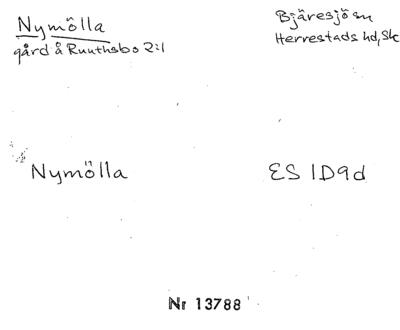 Nymölla
gård å Ruuthsbo 2:1
Bjäresjö sn
Herrestads hd, Sk
Nymölla
ES 1D9d
Nr 13788